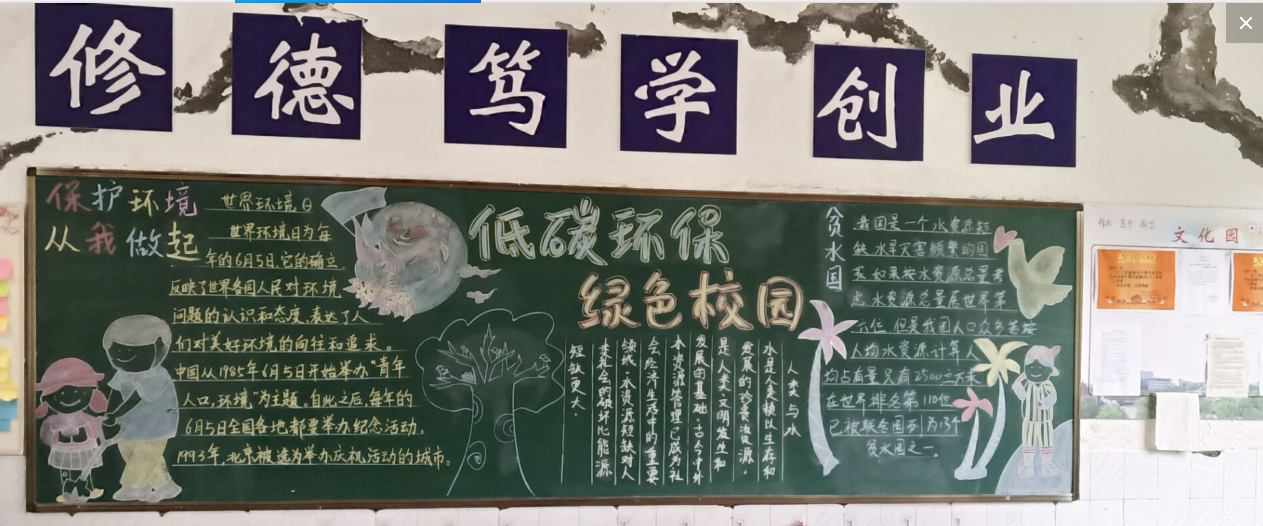 修德笃学创业
保护环境
从我做起
世界环境日
世界环境日为每
年的6月5日,它的确立
反映了世界各国人民对环境
问题的认识和态度,表达了人
们对美好环境的向往和追求。
中国从1985年6月5日开始举办"青年
人口,环境"为主题。自此之后,每年的
6月5日全国各地都要举办纪念活动。
1993年,北京被选为举办庆祝活动的城市。
低碳环保
绿色校园
人类与水
水是人类赖以生存和
发展的珍贵资源。
是人类文明发生和
发展的基础。古今中外
水资源管理已成为社
会经济生活中的重要
领域。水资源短缺对人
类社会的破坏比能源
短缺更大.
贫水国
我国是一个水资源
缺,水旱灾害频繁的国
家,如果按水资源总量考
虑,水资源总量居世界第
六位,但是我国人口众多
人均水资源计算,人
均占有量只有2500立方米
在世界排名第110位
已被联合国列为13个
贫水国之一。
文化园